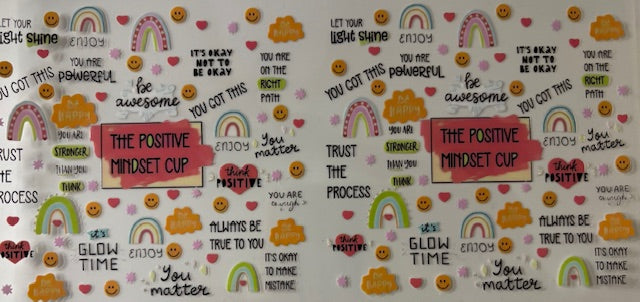 LET YOUR
light shine
ENJOY
BE
HAPPY
IT'S OKAY
NOT TO
BE OKAY
YOU ARE
ON THE
RIGHT
PATH
YOU GOT THIS
YOU ARE
POWERFUL
be
awesome
YOU GOT THIS
BE
HAPPY
YOU ARE
STRONGER
THAN YOU
THINK
THE POSITIVE
MINDSET CUP
ENJOY
You
matter
TRUST
THE
PROCESS
think
POSITIVE
YOU ARE
enough
think
POSITIVE
it's
GLOW
TIME
ENJOY
BE
HAPPY
ALWAYS BE
TRUE TO YOU
BE
HAPPY
You
matter
IT'S OKAY
TO MAKE
MISTAKE
LET YOUR
light shine
ENJOY
BE
HAPPY
IT'S OKAY
NOT TO
BE OKAY
YOU ARE
ON THE
RIGHT
PATH
YOU GOT THIS
YOU ARE
POWERFUL
be
awesome
YOU GOT THIS
BE
HAPPY
YOU ARE
STRONGER
THAN YOU
THINK
THE POSITIVE
MINDSET CUP
ENJOY
You
matter
TRUST
THE
PROCESS
think
POSITIVE
YOU ARE
enough
think
POSITIVE
it's
GLOW
TIME
ENJOY
BE
HAPPY
ALWAYS BE
TRUE TO YOU
BE
HAPPY
You
matter
IT'S OKAY
TO MAKE
MISTAKE
BE
HAPPY